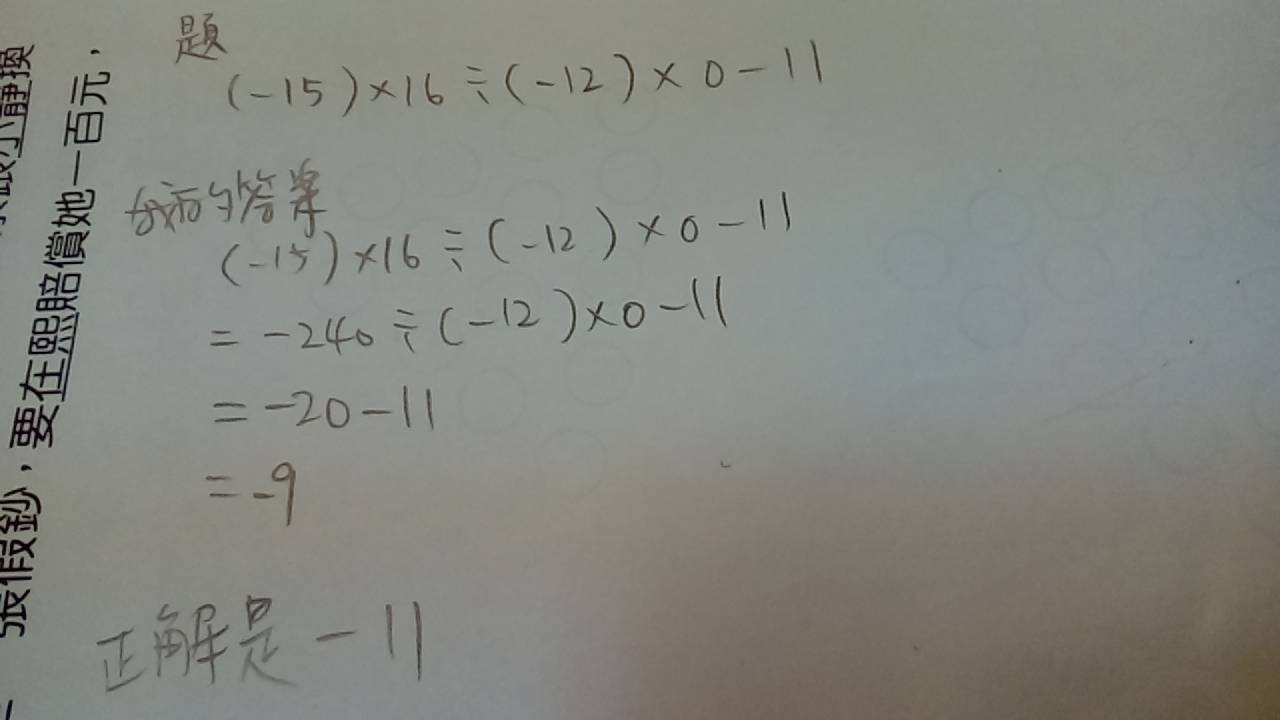 題
(-15)×16÷(-12)×0-11
我的答案
(-15)×16÷(-12)×0-11
=-240÷(-12)×0-11
=-20-11
=-9
正解是-11
小靜換
張假鈔，要在熙賠償她一百元．